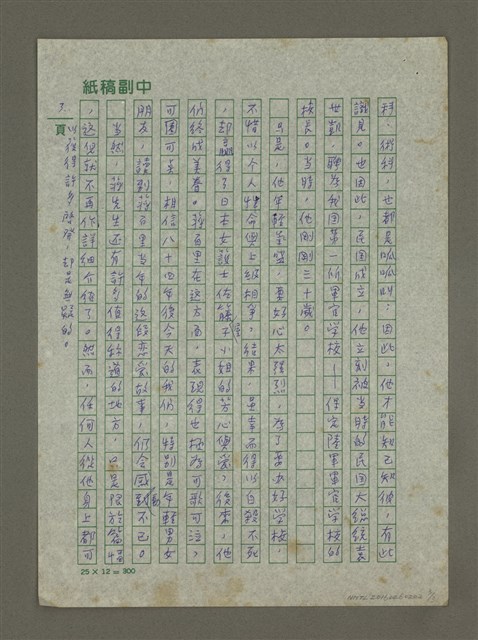 中副稿紙
科、術科，也都是呱呱叫；因此，他才能知己知彼，有此
識見。也因此，民國成立，他立刻被当時的民国大總統袁
世凱，聘為我国第一所軍官学校——保定陸軍軍官学校的
校長。当時，他剛剛三十歲。
只是，他年輕氣盛，要好心太強烈，為了要办好学校，
不惜以个人性命與上級相爭，結果，虽幸而得以自殺不死
，却贏得了日本女護士佐藤屋子小姐的芳心傾愛，後來，他
們終成美眷。蔣百里在这方面，表現得也极為可歌可泣，
可圈可点，相信八十四年後今天的我们，特别是年輕男女
朋友，讀到蔣百里当年的这段恋爱故事，仍会感動不已。
当然，蔣先生还有許多值得称道的地方，只是限於篇幅
，這兒就不再作詳細介紹了。然而，任何人從他身上都可
以獲得許多啟發，却是無疑的。
7.
頁
25 X 12 = 300